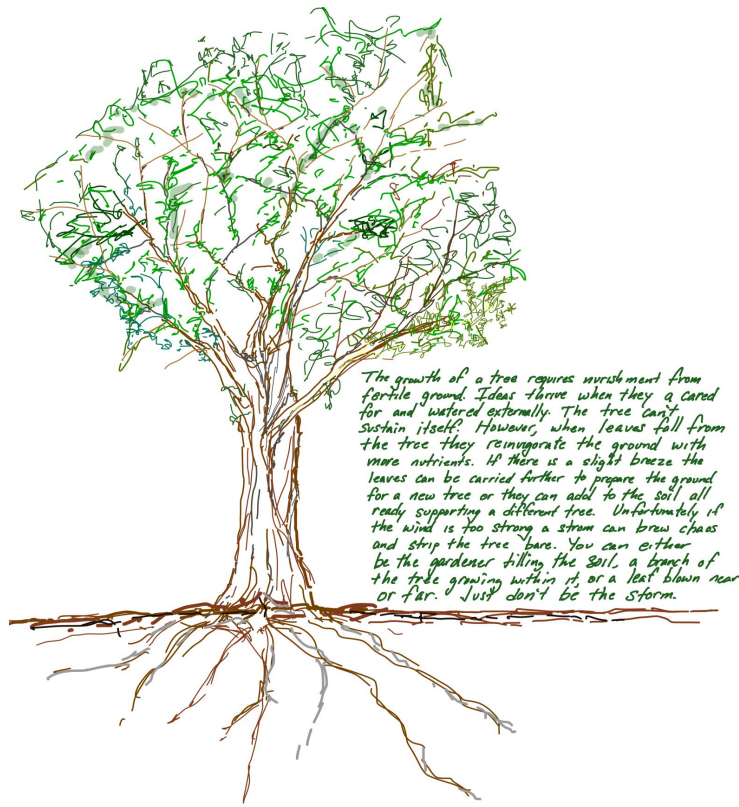 The growth of a tree requires nurishment from
fertile ground. Ideas thrive when they a cared
for and watered externally. The tree can't
sustain itself. However, when leaves fall from
the tree they reinvigorate the ground with
more nutrients. If there is a slight breeze the
leaves can be carried further to prepare the ground
for a new tree or they can add to the soil all
ready supporting a different tree. Unfortunately if
the wind is too strong a strom can brew chaos
and strip the tree bare. You can either
be the gardener tilling the soil, a branch of
the tree growing within it, or a leaf blown near
or far. Just don't be the storm.